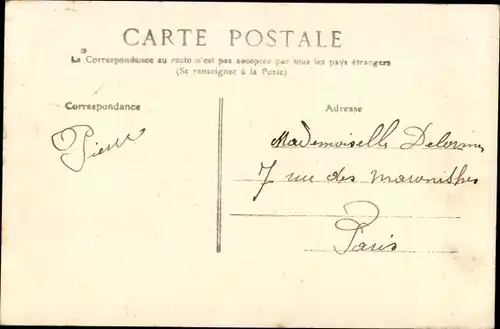 CARTE POSTALE
La Correspondance au recto n'est pas acceptée par tous les pays étrangers
(Se renseigner à la Poste)
Correspondance
Adresse
Pierre
Mademoiselle
7 rue des Maronites
Paris